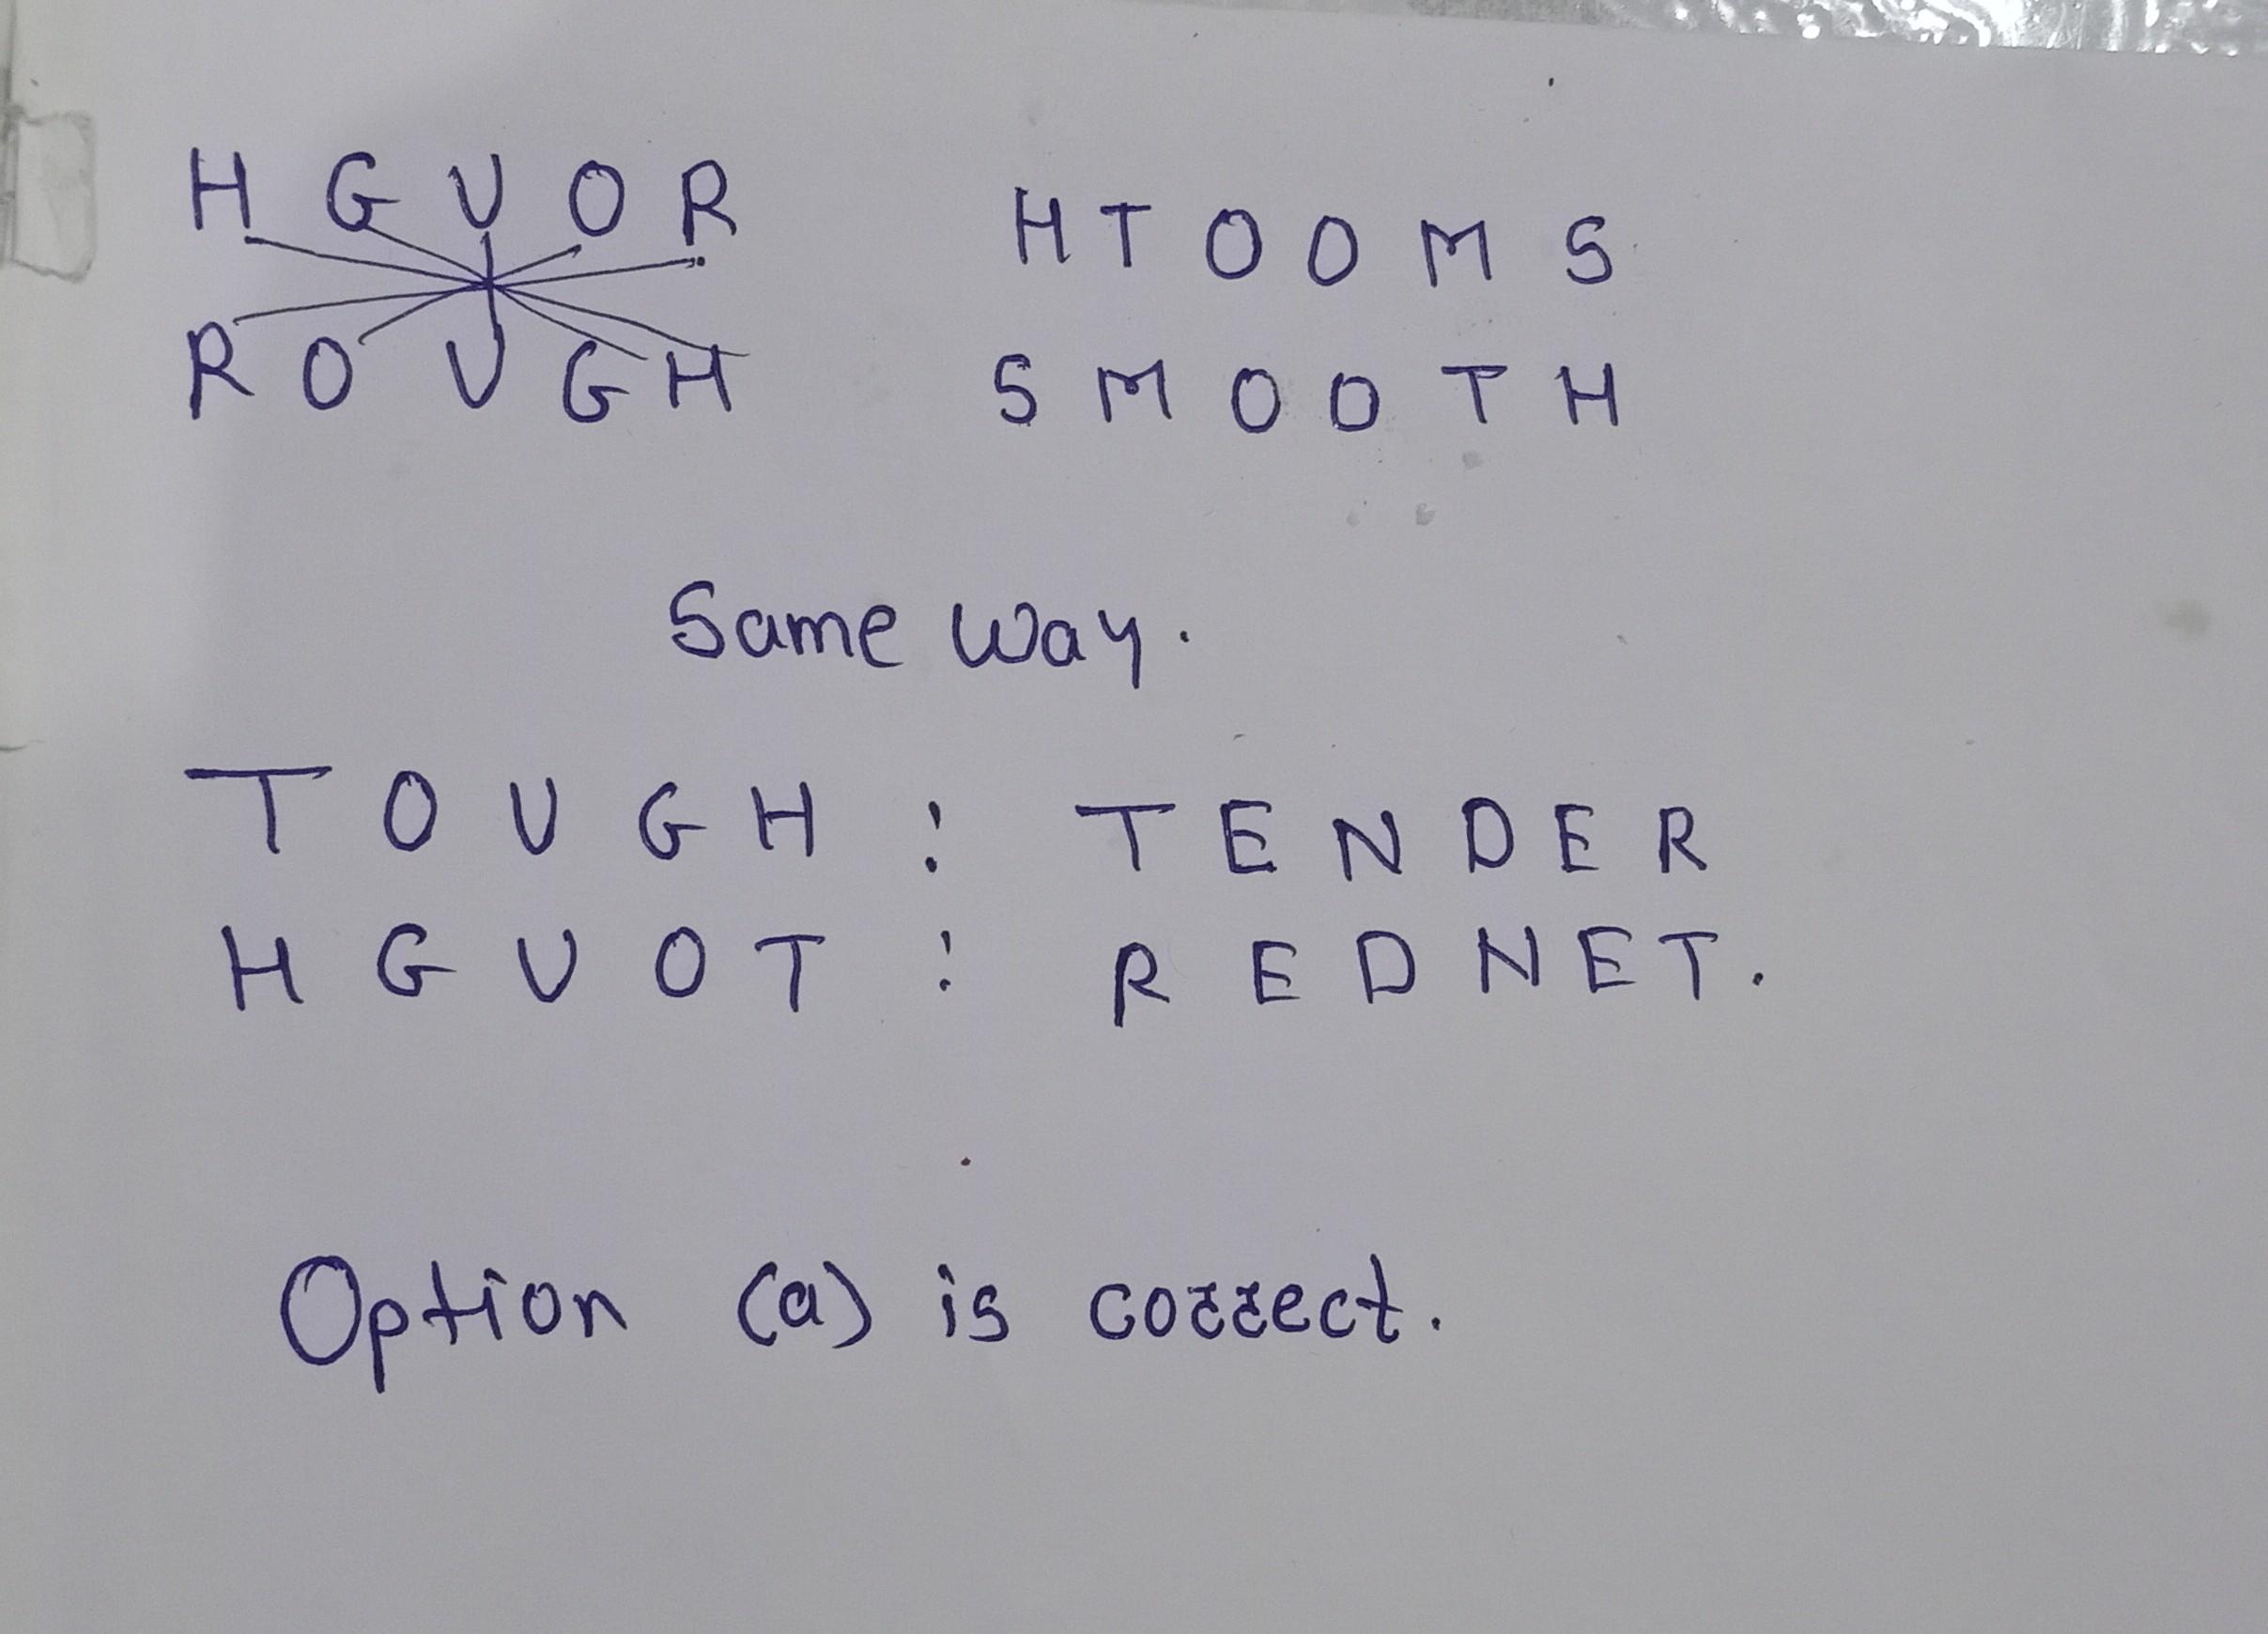 H G U O R
R O U G H
H T O O M S
S M O O T H
Same way.
T O U G H : T E N D E R
H G U O T : R E D N E T.
Option (a) is correct.